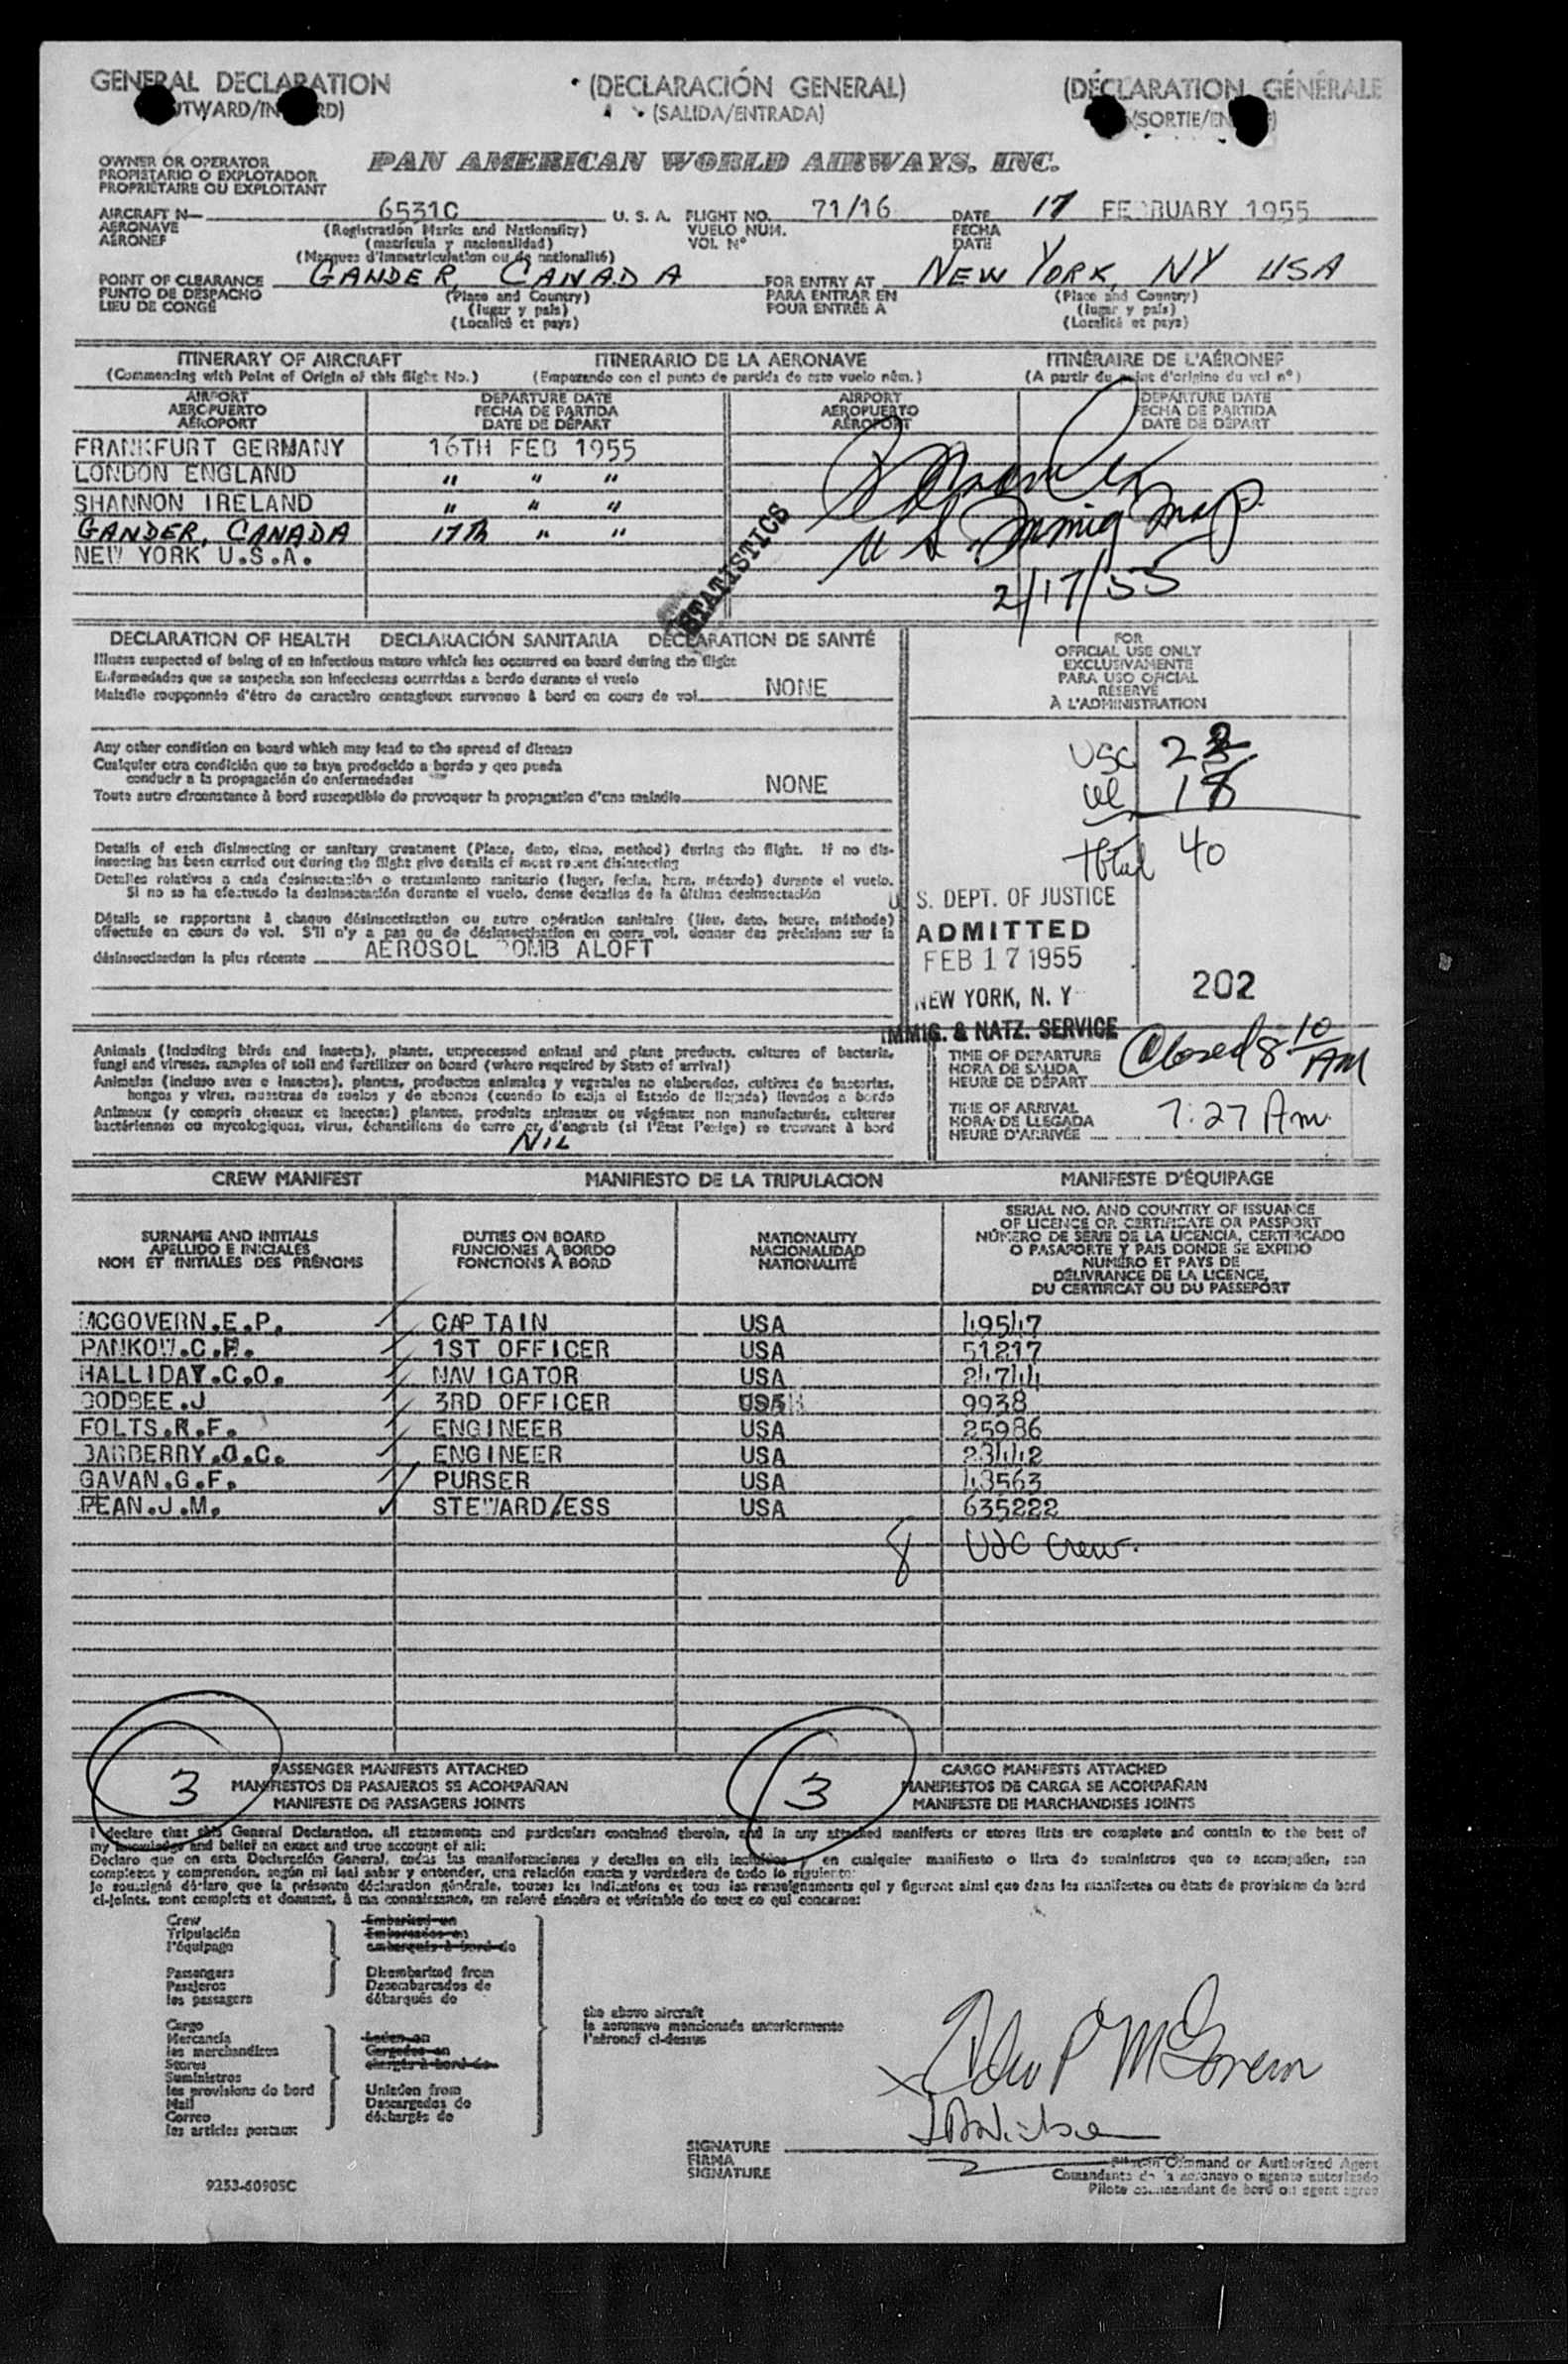 GENERAL DECLARATION (DECLARACIÓN GENERAL) (DÉCLARATION GÉNÉRALE
(SALIDA/ENTRADA)
OWNER OR OPERATOR
PROPIETARIO O EXPLOTADOR
PROPRIÉTAIRE OU EXPLOITANT
PAN AMERICAN WORLD AIRWAYS, INC.
AIRCRAFT N— 6531C U. S. A. FLIGHT NO. 71/16 DATE 17 FEBRUARY 1955
AERONAVE (Registration Marks and Nationality) VUELO NUM. FECHA
AÉRONEF (matrícula y nacionalidad) VOL Nº DATE
(Marques d'immatriculation ou de nationalité)
POINT OF CLEARANCE GANDER, CANADA FOR ENTRY AT NEW YORK, NY USA
PUNTO DE DESPACHO (Place and Country) PARA ENTRAR EN (Place and Country)
LIEU DE CONGÉ (lugar y país) POUR ENTRÉE À (lugar y país)
(Localité et pays) (Localité et pays)
ITINERARY OF AIRCRAFT ITINERARIO DE LA AERONAVE ITINÉRAIRE DE L'AÉRONEF
(Commencing with Point of Origin of this flight No.) (Empezando con el punto de partida de este vuelo núm.) (A partir du point d'origine du vol nº)
AIRPORT DEPARTURE DATE AIRPORT DEPARTURE DATE
AEROPUERTO FECHA DE PARTIDA AEROPUERTO FECHA DE PARTIDA
AÉROPORT DATE DE DÉPART AÉROPORT DATE DE DÉPART
FRANKFURT GERMANY 16TH FEB 1955
LONDON ENGLAND " " "
SHANNON IRELAND " " "
GANDER, CANADA 17th " "
NEW YORK U.S.A.
U S. Immig Insp.
2/17/55
STATISTICS
DECLARATION OF HEALTH DECLARACIÓN SANITARIA DÉCLARATION DE SANTÉ
Illness suspected of being of an infectious nature which has occurred on board during the flight
Enfermedades que se sospecha son infecciosas ocurridas a bordo durante el vuelo
Maladie soupçonnée d'être de caractère contagieux survenue à bord en cours de vol NONE
Any other condition on board which may lead to the spread of disease
Cualquier otra condición que se haya producido a bordo y que pueda
conducir a la propagación de enfermedades
Toute autre circonstance à bord susceptible de provoquer la propagation d'une maladie NONE
Details of each disinsecting or sanitary treatment (Place, date, time, method) during the flight. If no dis-
insecting has been carried out during the flight give details of most recent disinsecting
Detalles relativos a cada desinsectación o tratamiento sanitario (lugar, fecha, hora, método) durante el vuelo.
Si no se ha efectuado la desinsectación durante el vuelo, dense detalles de la última desinsectación
Détails se rapportant à chaque désinsectisation ou autre opération sanitaire (lieu, date, heure, méthode)
effectuée en cours de vol. S'il n'y a pas eu de désinsectisation en cours vol, donner des précisions sur la
désinsectisation la plus récente AEROSOL BOMB ALOFT
FOR
OFFICIAL USE ONLY
EXCLUSIVAMENTE
PARA USO OFICIAL
RÉSERVÉ
À L'ADMINISTRATION
USC 22
18
Total 40
U. S. DEPT. OF JUSTICE
ADMITTED
FEB 17 1955
NEW YORK, N. Y
202
IMMIG. & NATZ. SERVICE
Animals (including birds and insects), plants, unprocessed animal and plant products, cultures of bacteria,
fungi and viruses, samples of soil and fertilizer on board (where required by State of arrival)
Animales (incluso aves e insectos), plantas, productos animales y vegetales no elaborados, cultivos de bacterias,
hongos y virus, muestras de suelos y de abonos (cuando lo exija el Estado de llegada) llevados a bordo
Animaux (y compris oiseaux et insectes) plantes, produits animaux ou végétaux non manufacturés, cultures
bactériennes ou mycologiques, virus, échantillons de terre et d'engrais (si l'État l'exige) se trouvant à bord
NIL
TIME OF DEPARTURE Closed 8 10 AM
HORA DE SALIDA
HEURE DE DÉPART
TIME OF ARRIVAL 7:27 Am
HORA DE LLEGADA
HEURE D'ARRIVÉE
CREW MANIFEST MANIFIESTO DE LA TRIPULACION MANIFESTE D'ÉQUIPAGE
SURNAME AND INITIALS
APELLIDO E INICIALES
NOM ET INITIALES DES PRÉNOMS
DUTIES ON BOARD
FUNCIONES A BORDO
FONCTIONS À BORD
NATIONALITY
NACIONALIDAD
NATIONALITÉ
SERIAL NO. AND COUNTRY OF ISSUANCE
OF LICENCE OR CERTIFICATE OR PASSPORT
NÚMERO DE SERIE DE LA LICENCIA, CERTIFICADO
O PASAPORTE Y PAIS DONDE SE EXPIDO
NUMÉRO ET PAYS DE
DÉLIVRANCE DE LA LICENCE,
DU CERTIFCAT OU DU PASSEPORT
MCGOVERN.E.P. CAPTAIN USA 49547
PANKOW.C.F. 1ST OFFICER USA 51217
HALLIDAY.C.O. NAVIGATOR USA 24744
GODBEE.J 3RD OFFICER USA 9938
FOLTS.R.F. ENGINEER USA 25986
BARBERRY.O.C. ENGINEER USA 23442
GAVAN.G.F. PURSER USA 43563
PEAN.J.M. STEWARD/ESS USA 635222
8 USC Crew.
3 PASSENGER MANIFESTS ATTACHED 3 CARGO MANIFESTS ATTACHED
MANIFIESTOS DE PASAJEROS SE ACOMPAÑAN MANIFIESTOS DE CARGA SE ACOMPAÑAN
MANIFESTE DE PASSAGERS JOINTS MANIFESTE DE MARCHANDISES JOINTS
I declare that this General Declaration, all statements and particulars contained therein, and in any attached manifests or stores lists are complete and contain to the best of
my knowledge and belief an exact and true account of all:
Declaro que en esta Declaración General, todas las manifestaciones y detalles en ella incluidos y en cualquier manifiesto o lista de suministros que se acompañen, son
completos y comprenden, según mi leal saber y entender, una relación exacta y verdadera de todo lo siguiente:
Je soussigné déclare que la présente déclaration générale, toutes les indications et tous les renseignements qui y figurent ainsi que dans les manifestes ou états de provisions de bord
ci-joints, sont complets et donnent, à ma connaissance, un relevé sincère et véritable de tout ce qui concerne:
Crew Embarked on
Tripulación Embarcados en
l'équipage embarqués à bord de
Passengers Disembarked from
Pasajeros Desembarcados de
les passagers débarqués de
the above aircraft
la aeronave mencionada anteriormente
l'aéronef ci-dessus
Cargo
Mercancía Laden on
les merchandires Cargados en
Stores chargés à bord de
Suministros
les provisions de bord Unladen from
Mail Descargados de
Correo déchargés de
les articles postaux
P McGovern
SIGNATURE
FIRMA
SIGNATURE
Pilot in Command or Authorized Agent
Comandante de la aeronave o agente autorizado
Pilote commandant de bord ou agent agréé
9253-60905C